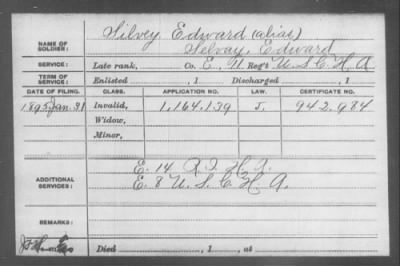 NAME OF SOLDIER: Silvey Edward (alias)
Selvay, Edward
SERVICE: Late rank, Co. E, 11 Reg't U.S.C.H.A
TERM OF SERVICE: Enlisted , 1 Discharged , 1
DATE OF FILING. CLASS. APPLICATION NO. LAW. CERTIFICATE NO.
1895 Jan. 31 Invalid, 1,164,139 J. 942,984
Widow,
Minor,
ADDITIONAL SERVICES: E. 14 R.I.H.A.
E. 8 U.S.C.H.A.
REMARKS:
Died , 1 , at